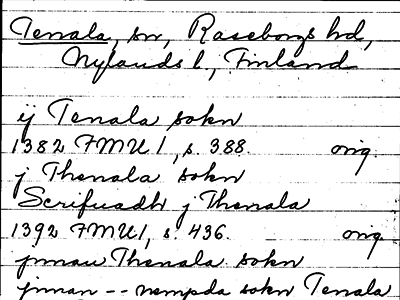 Tenala, sn, Raseborgs hd,
Nylands l., Finland
ij Tenala sokn
1382 FMU 1, s. 388. orig.
j Thenala sokn
Scrifuadh j Thenala
1392 FMU 1, s. 436. orig.
jnnan Thenala sokn
jnnan -- nempda sokn Tenala